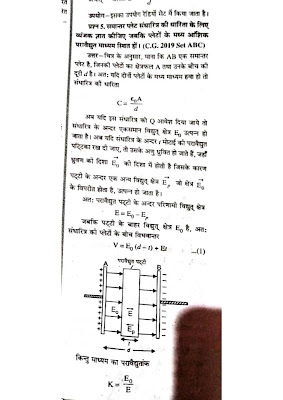 उपयोग—इसका उपयोग रेडियो सेट में किया जाता है।
प्रश्न 5. समान्तर प्लेट संधारित्र की धारिता के लिए
व्यंजक ज्ञात कीजिए जबकि प्लेटों के मध्य आंशिक
परावैद्युत माध्यम स्थित हो। (C.G. 2019 Set ABC)
उत्तर—चित्र के अनुसार, माना कि AB एक समान्तर
प्लेट है, जिनकी प्लेटों का क्षेत्रफल A तथा उनके बीच की
दूरी d है। अतः यदि दोनों प्लेटों के मध्य माध्यम हवा हो तो
संधारित्र की धारिता
C = ε₀A / d
अब यदि इस संधारित्र को Q आवेश दिया जाये तो
संधारित्र के अन्दर एकसमान विद्युत् क्षेत्र E₀ उत्पन्न हो
जाता है। अब यदि संधारित्र के अन्दर t मोटाई की परावैद्युत
पट्टिका रख दी जाए, तो उसके अणु ध्रुवित हो जाते हैं, जहाँ
ध्रुवण की दिशा E₀ की दिशा में होती है जिसके कारण
पट्टी के अन्दर एक अन्य विद्युत् क्षेत्र Eₚ जो क्षेत्र E₀
के विपरीत होता है, उत्पन्न हो जाता है।
अतः परावैद्युत पट्टी के अन्दर परिणामी विद्युत् क्षेत्र
E = E₀ – Eₚ
जबकि पट्टी के बाहर विद्युत् क्षेत्र E₀ है, अतः
संधारित्र की प्लेटों के बीच विभवान्तर
V = E₀ (d – t) + Et ...(1)
परावैद्युत पट्टी
A B
E₀ E
Eₚ
t
d
किन्तु माध्यम का परावैद्युतांक
K = E₀ / E